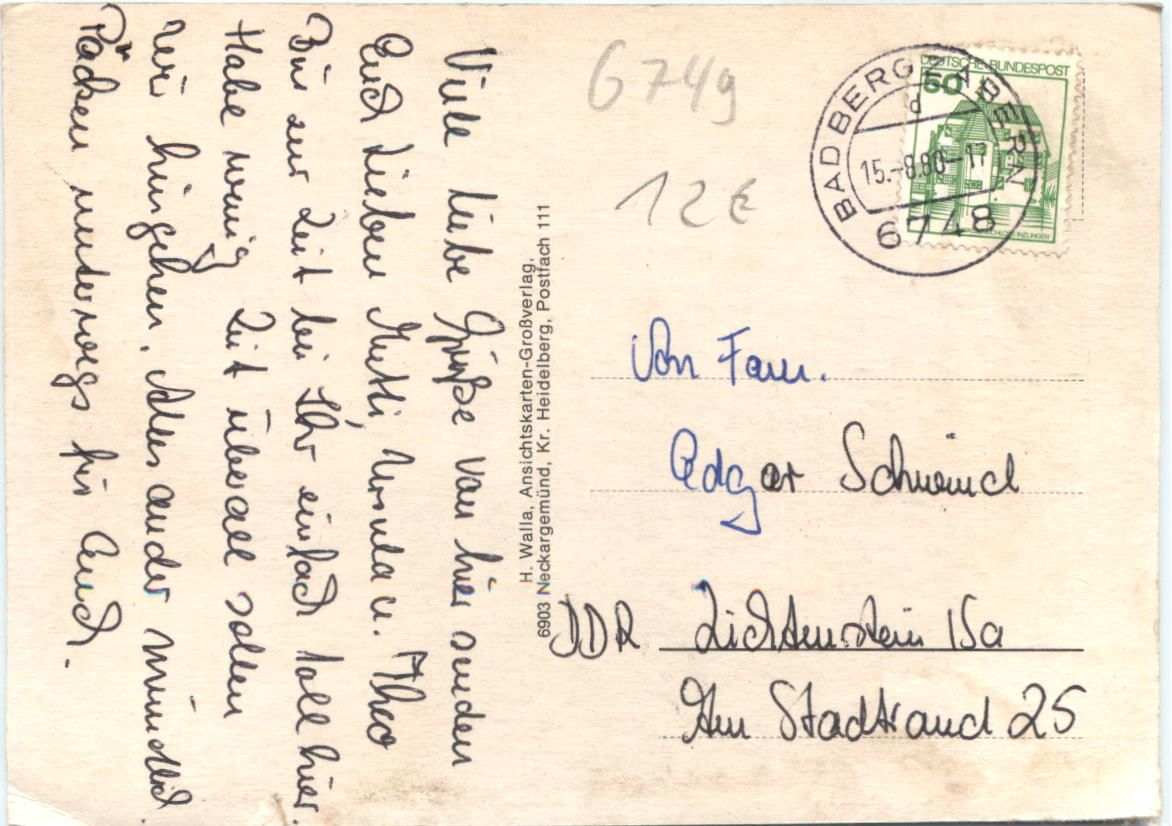 Viele liebe Grüße von hier senden
Euch Lieben Mutti, Ursula u. Theo
Bin zur Zeit bei Ihr einfach toll hier.
Habe wenig Zeit überall sollen
wir hingehen. Alles ander mündlich
Päcken unterwegs für Euch.
H. Walla, Ansichtskarten-Großverlag,
6903 Neckargemünd, Kr. Heidelberg, Postfach 111
6749
12 €
BAD BERGZABERN
d
15.-8.80-17
6748
DEUTSCHE BUNDESPOST
50
Von Fam.
Edgar Schmid
DDR Lichtenstein Sa
Am Stadtrand 25